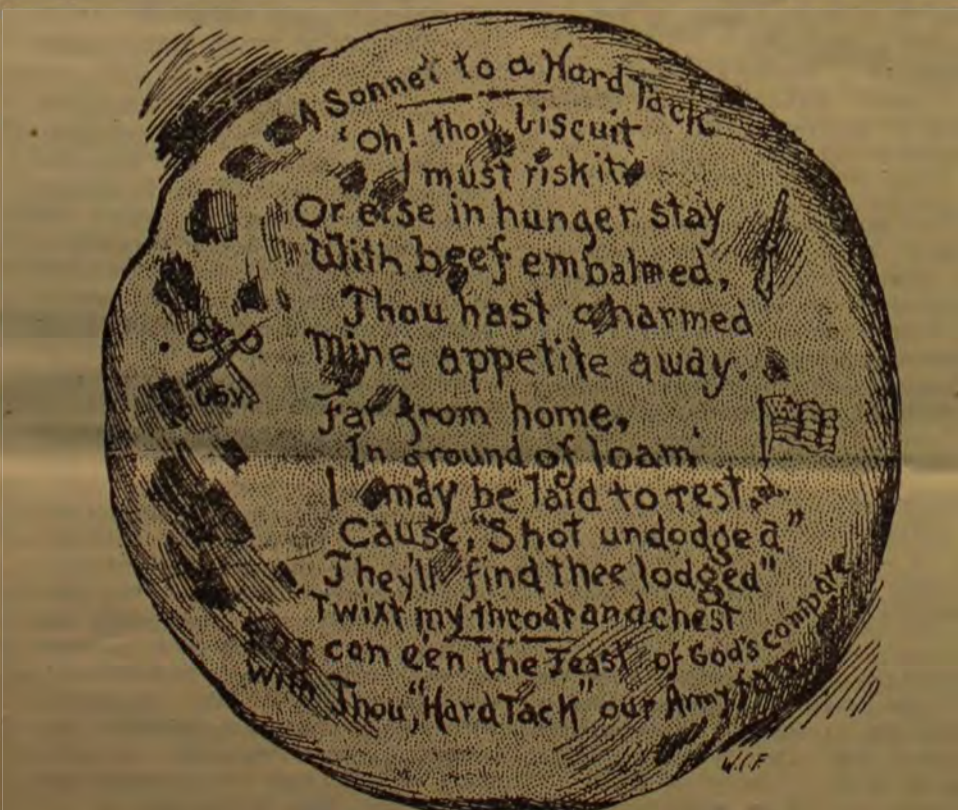 A Sonnet to a Hard Tack
"Oh! thou biscuit
I must risk it
Or else in hunger stay
With beef embalmed,
Thou hast charmed
Mine appetite away.
Far from home,
In ground of loam
I may be laid to rest,
Cause, "Shot undodged"
They'll find thee lodged"
'Twixt my throat and chest
can e'en the Feast of God's compare
With Thou, "Hard Tack" our Army
W.C.F.